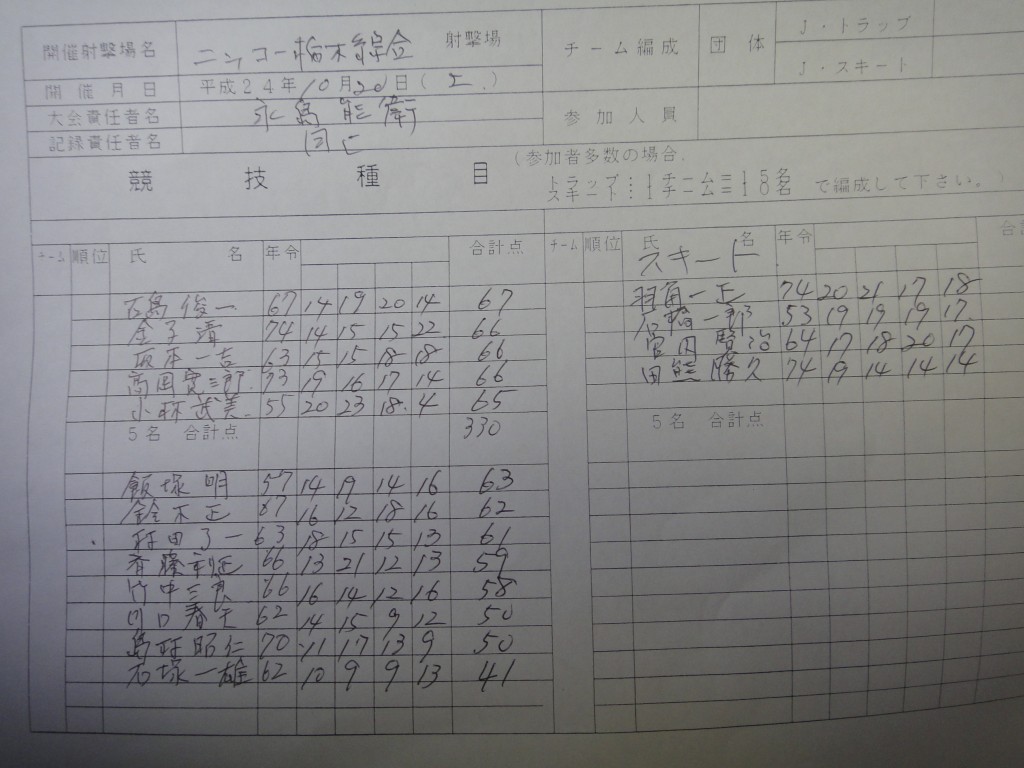 開催射撃場名 ニッコー栃木綜合 射撃場 チーム編成 団体 J・トラップ
J・スキート
開催月日 平成24年10月20日(土.)
大会責任者名 永島能衛 参加人員
記録責任者名 同上
競技種目 (参加者多数の場合、
トラップ:1チーム=15名
スキート:1チーム=18名 で編成して下さい。)
チーム 順位 氏名 年令 合計点 チーム 順位 氏名 年令 合計
スキート
石島俊一 67 14 19 20 14 67 羽角一正 74 20 21 17 18
金子清 74 14 15 15 22 66 石橋一郎 53 19 19 19 17
坂本一吉 63 15 15 18 18 66 宮内賢治 64 17 18 20 17
高国定三郎 73 19 16 17 14 66 田熊勝久 74 19 14 14 14
小林武美 55 20 23 18 4 65
5名 合計点 330 5名 合計点
飯塚明 57 14 19 14 16 63
鈴木正 67 16 12 18 16 62
村田了一 63 18 15 15 13 61
斉藤利延 66 13 21 12 13 59
竹中三良 66 16 14 12 16 58
川口春 62 14 15 9 12 50
島村昭仁 70 11 17 13 9 50
石塚一雄 62 10 9 9 13 41